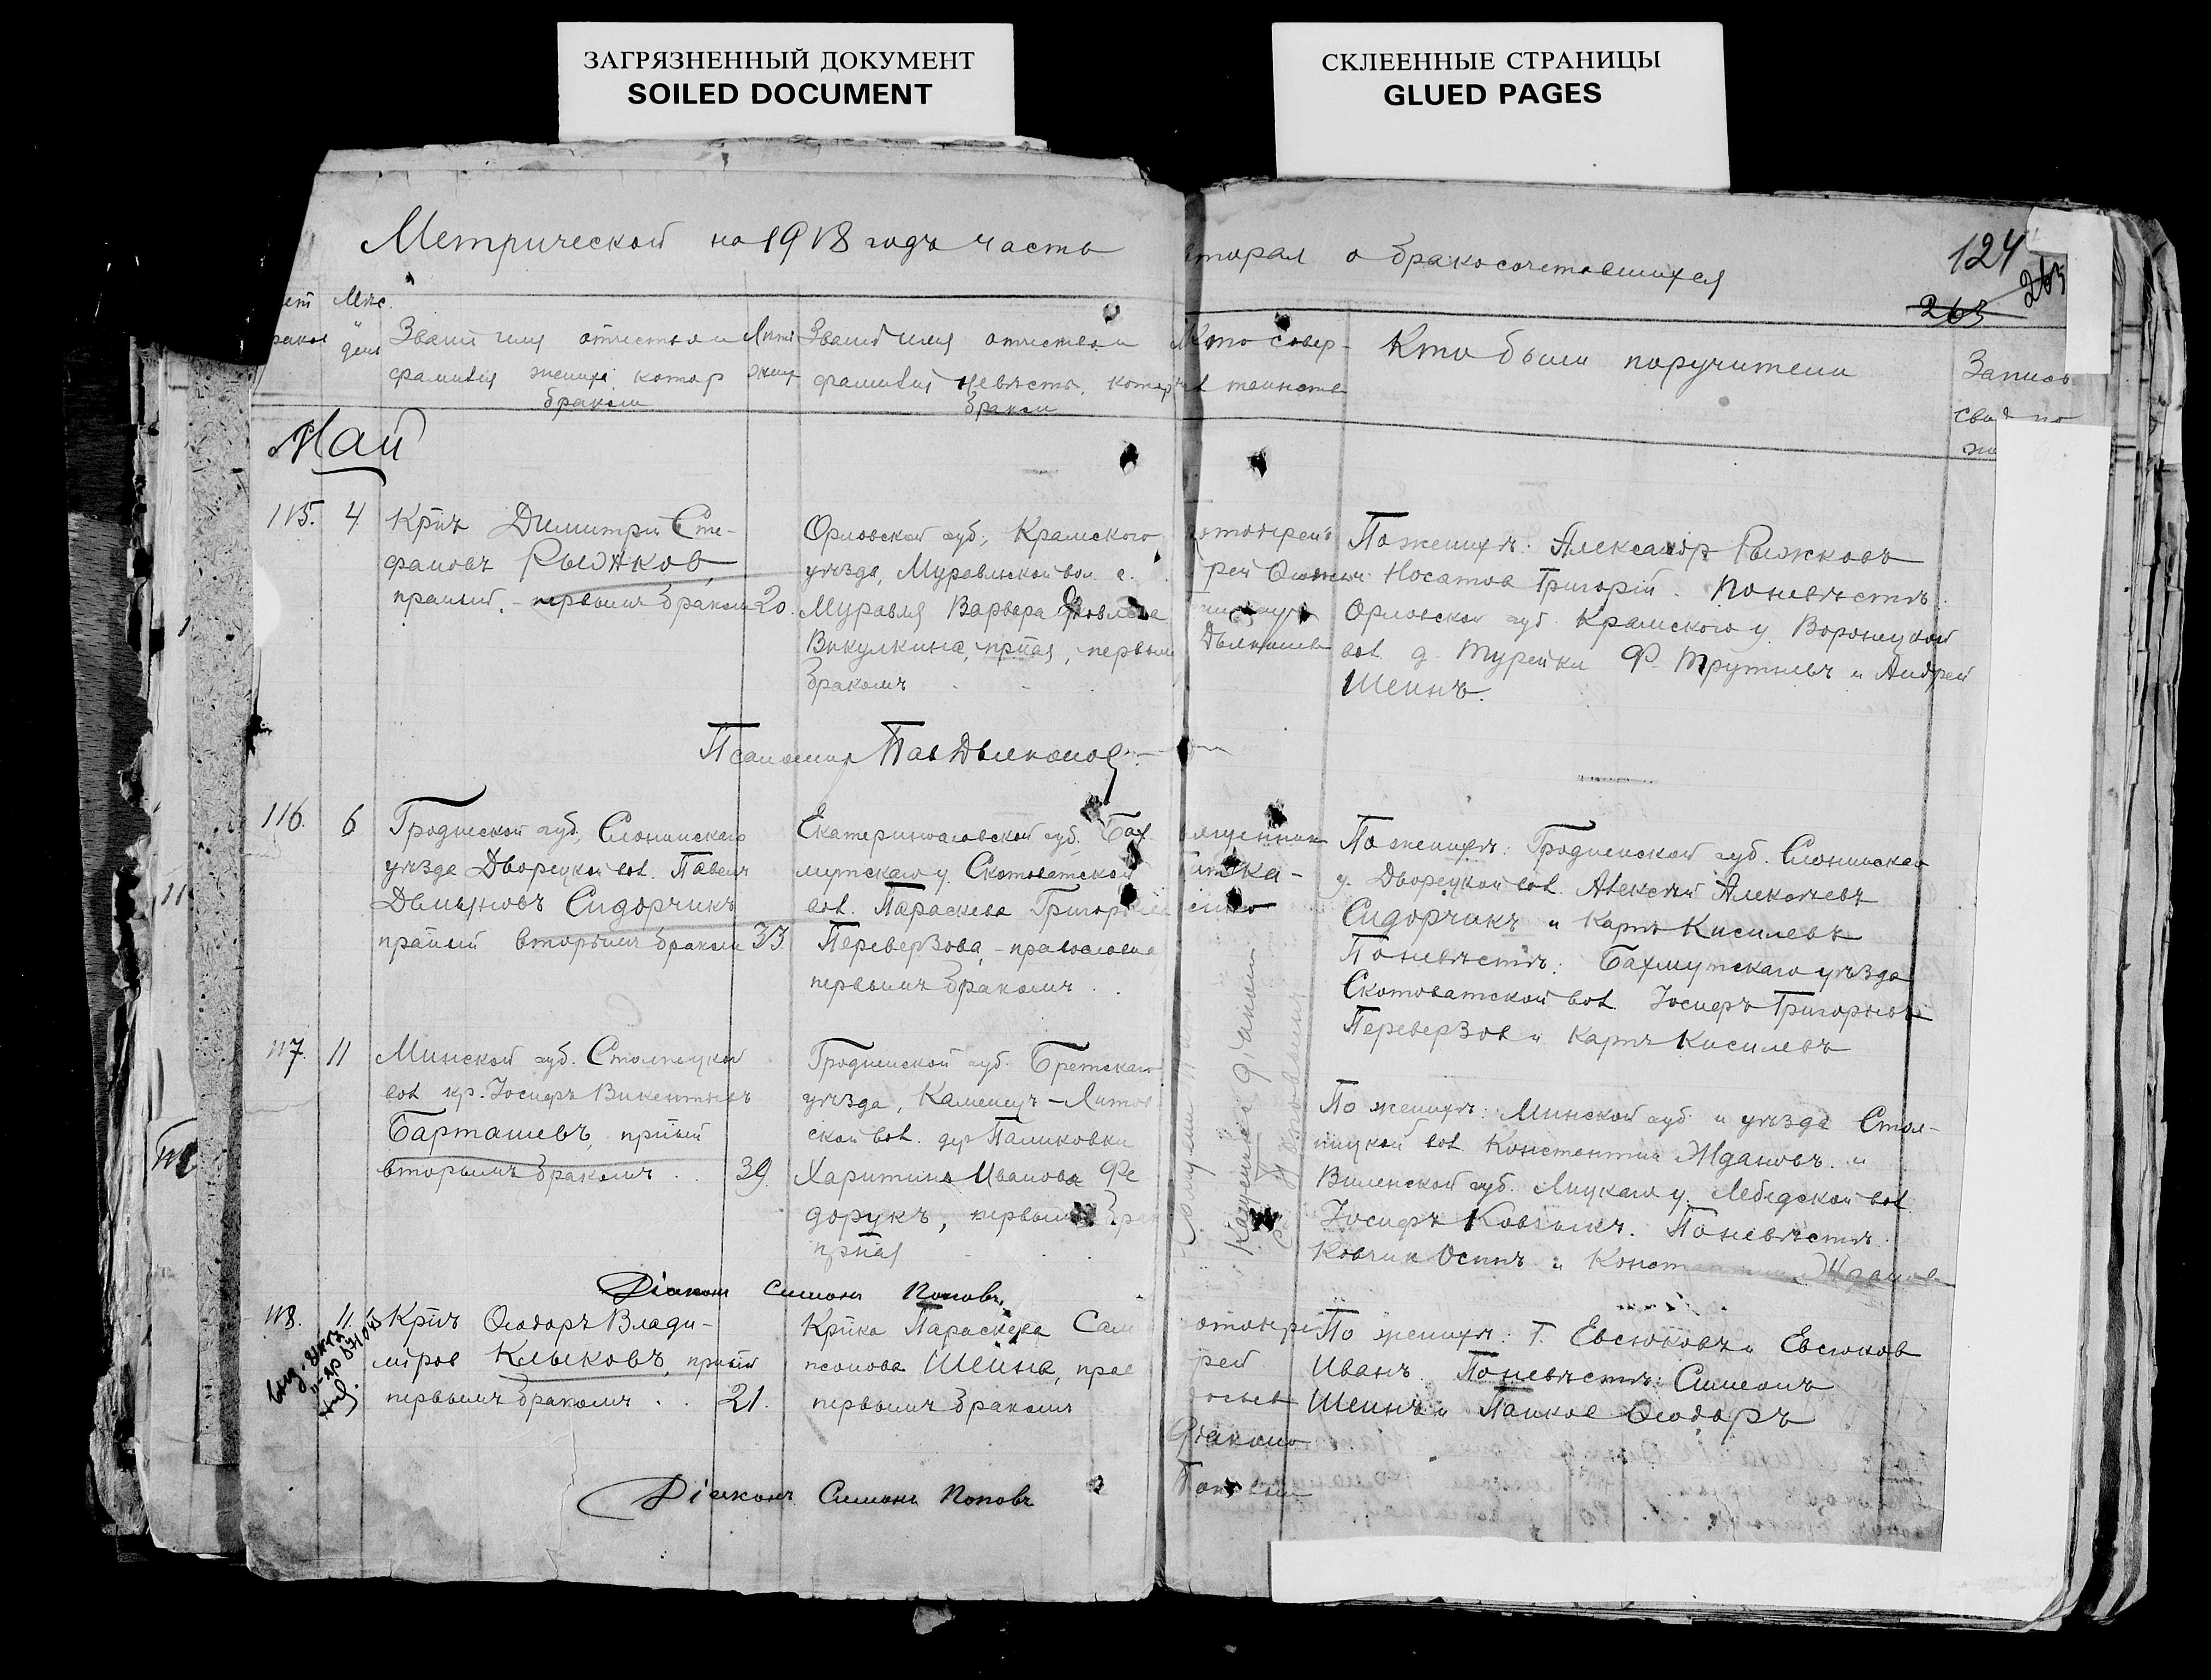 ЗАГРЯЗНЕННЫЙ ДОКУМЕНТ
SOILED DOCUMENT
СКЛЕЕННЫЕ СТРАНИЦЫ
GLUED PAGES
Метрической на 1918 годъ часть
вторая о бракосочетавшихся
124
265
263
Мѣс.
Званіе имя отчество и
фамилія жениха, котор
бракомъ
Званіе имя отчество и
фамилія невѣсты, котор
бракомъ
Кто совер-
таинство
Кто были поручители
Запись
Май
115. 4
Кр̃нъ Димитрій Сте-
фановъ Рыжков,
прапый, - первымъ бракомъ 20.
Орловской губ., Крамского
уѣзда, Муравльской вол. с.
Муравля Варвара Яковлева
Викулкина, пр̃ная, первым
бракомъ
Дьяконов
По женихѣ: Александръ Рыжковъ
Носатов Григорій. По невѣстѣ
Орловской губ. Крамского у. Воронецкой
вол. д. Турейки Ф. Трутневъ и Андрей
Шеинъ.
Псаломщ Пав Дьяконов
116. 6
Гродненской губ. Слонимскаго
уѣзда Дворецкой вол. Павелъ
Демьяновъ Сидорчикъ
прапый вторымъ бракомъ 33
Екатеринославской губ. Бах-
мутскаго у. Скотоватской
вол. Параскева Григорьева
Переверзова, - православная
первымъ бракомъ
По женихѣ: Гродненской губ. Слонимскаго
у. Дворецкой вол. Алексѣй Алексѣевъ
Сидорчикъ и Карпъ Кисилевъ
По невѣстѣ: Бахмутскаго уѣзда
Скотоватской вол. Іосифъ Григорьевъ
Переверзов и Карпъ Кисилевъ
117. 11
Минской губ. Столпецкой
вол. кр. Іосифъ Викентьевъ
Барташевъ, прпый
вторымъ бракомъ 39.
Гродненской губ. Бретскаго
уѣзда, Каменецъ-Литов
ской вол. дер Паликовки
Харитина Иванова Фе
дорукъ, первымъ брак
прпая
По женихѣ: Минской губ и уѣзда Стол-
пицкой вол. Константин Ждановъ и
Виленской губ. Лицкаго у. Лебедской вол
Іосифъ Ковчикъ. По невѣстѣ
Ковчик Осипъ и Константин Жданов
Діаконъ Симонъ Поповъ.
118. 11.
Кр̃нъ Ѳеодоръ Влади-
міров Клыковъ, прпый
первымъ бракомъ 21.
Кр̃нка Параскева Сам
псонова Шеина, прав
первымъ бракомъ
По женихѣ: Г. Евсюковъ и Евсюков
Иванъ. По невѣстѣ: Симеонъ
Шеинъ и Панков Ѳеодоръ
Діаконъ Симонъ Поповъ